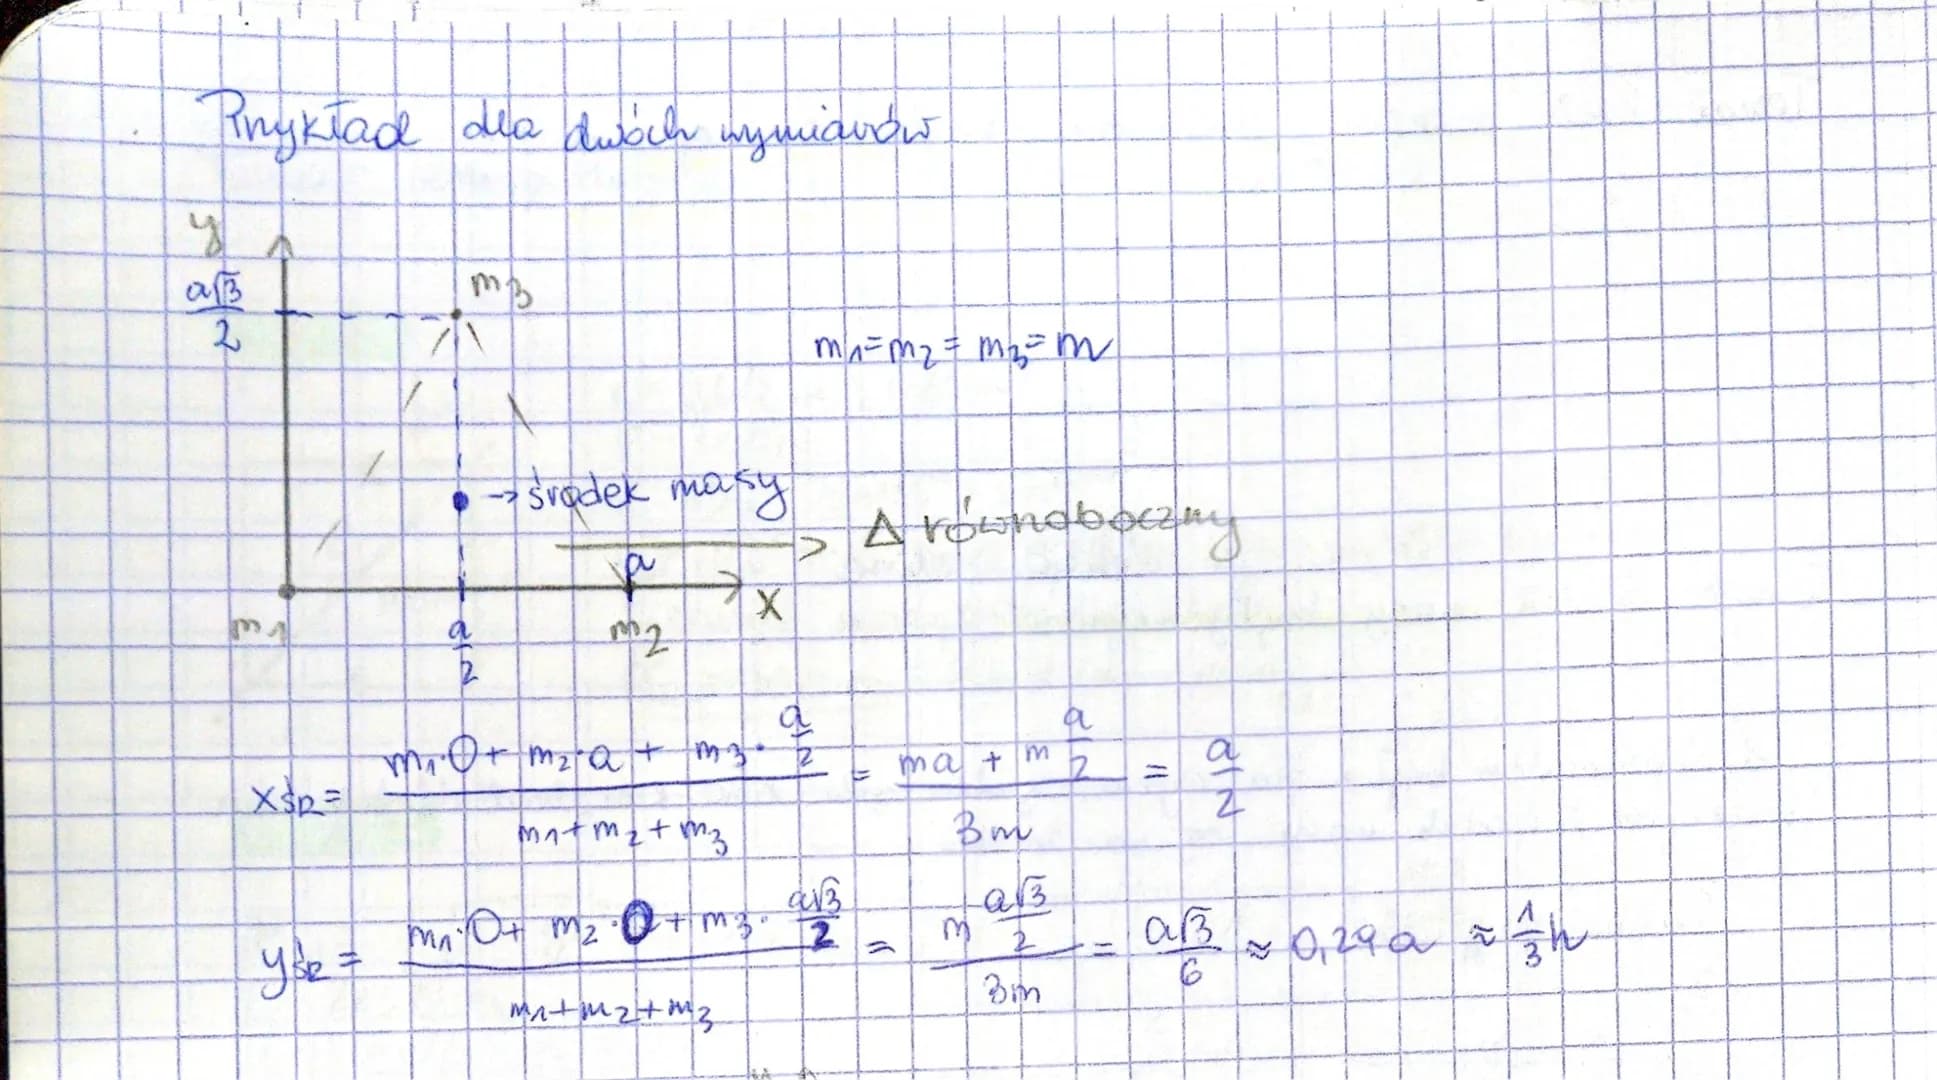 Przykład dla dwóch wymiarów
y
a√3/2
m3
m1=m2=m3=m
→ środek masy
Δ równoboczny
a
x
m1
a/2
m2
xśr = (m1·0 + m2·a + m3·a/2)/(m1+m2+m3) = (ma + m a/2)/3m = a/2
yśr = (m1·0 + m2·0 + m3·a√3/2)/(m1+m2+m3) = (m a√3/2)/3m = a√3/6 ≈ 0,29a ≈ 1/3h